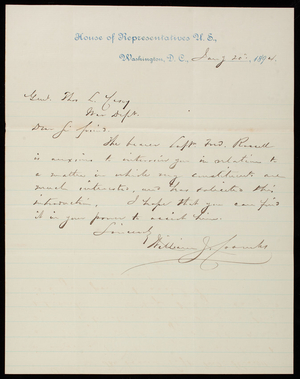 House of Representatives U. S.,
Washington, D. C., Jany 1894.
Genl. Thos L. Casey
War Dept.
My Dear Sir
The bearer Capt Fred. Russell
is anxious to interview you in relation to
a matter in which my constituents are
much interested, and has solicited this
introduction. I hope that you can find
it in your power to assist him.
Sincerely
William J.